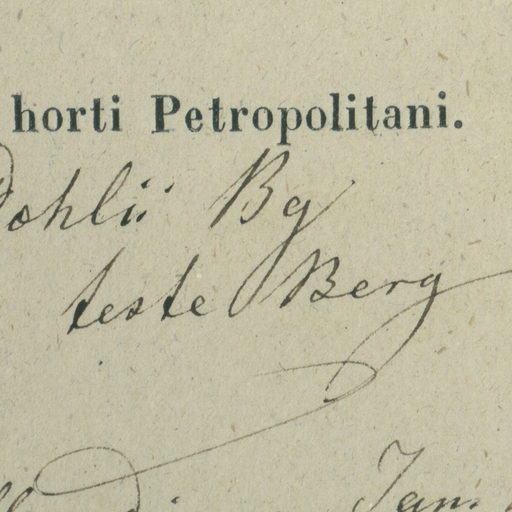 horti Petropolitani.
Pohlii Bg
teste Berg
Jan.